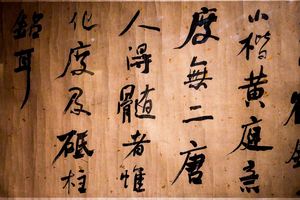 小楷黄庭
度無二唐
人得髓者惟
化度及砥柱
銘耳